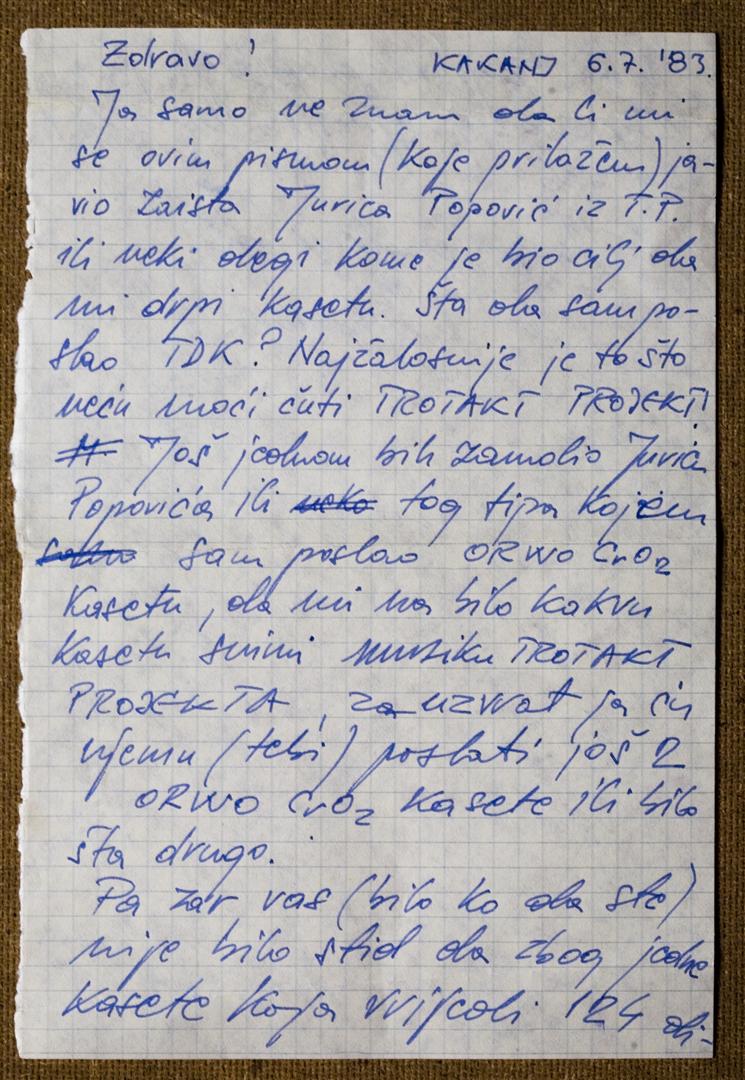 Zdravo! KAKANJ 6.7.'83.
Ja samo ne znam da li mi
se ovim pismom (koje prilažem) ja-
vio zaista Jurica Popović iz T.P.
ili neki drugi kome je bio cilj da
mi drpi kasetu. Šta da sam po-
slao TDK? Najžalosnije je to što
neću moći čuti TROTAKT PROJEKT!
Još jednom bih zamolio Juricu
Popovića ili neko tog tipa kojem
samo sam poslao ORWO CrO2
kasetu, da mi na bilo kakvu
kasetu snimi muziku TROTAKT
PROJEKTA, za uzvrat ja ću
njemu (tebi) poslati još 2
ORWO CrO2 kasete ili bilo
šta drugo.
Pa zar vas (bilo ko da ste)
nije bilo stid da zbog jedne
kasete koja vrijedi 124 di-